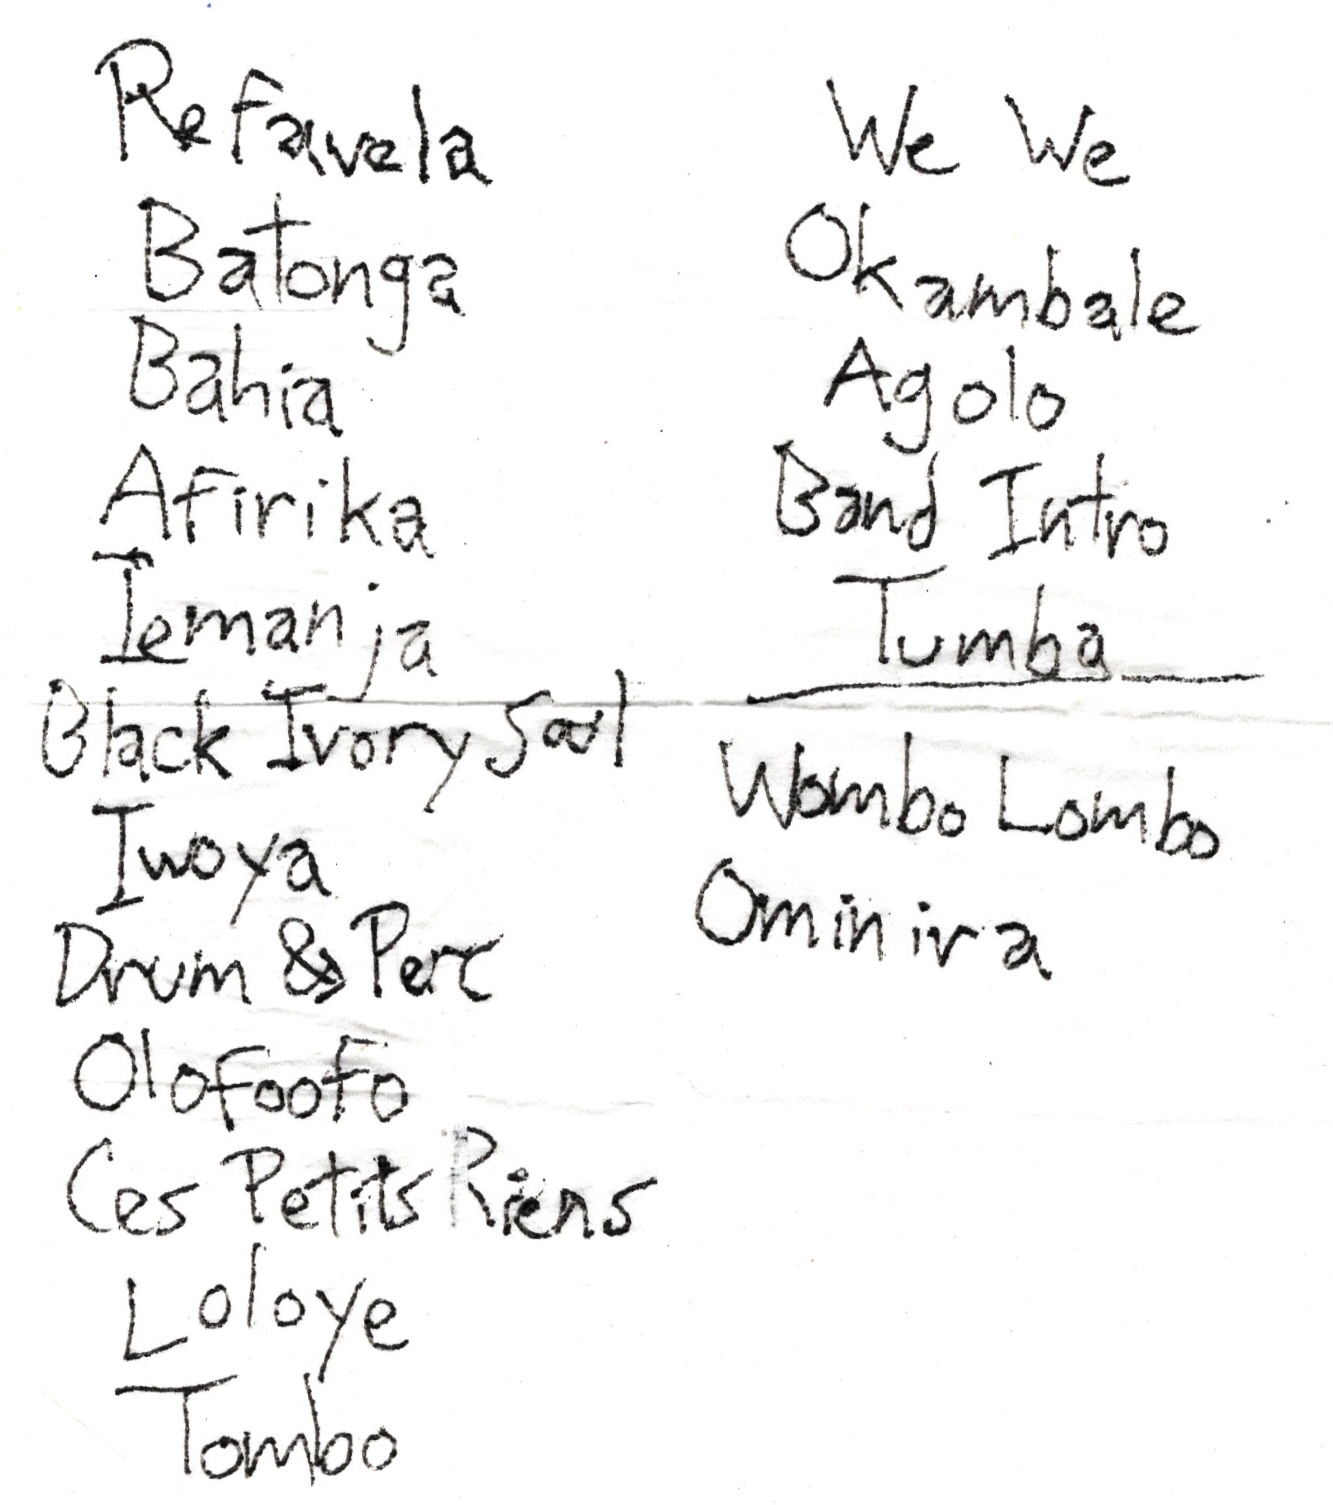 Refavela
Batonga
Bahia
Afirika
Iemanja
Black Ivory Soul
Iwoya
Drum & Perc
Olofoofo
Ces Petits Riens
Loloye
Tombo
We We
Okambale
Agolo
Band Intro
Tumba
Wombo Lombo
Ominira